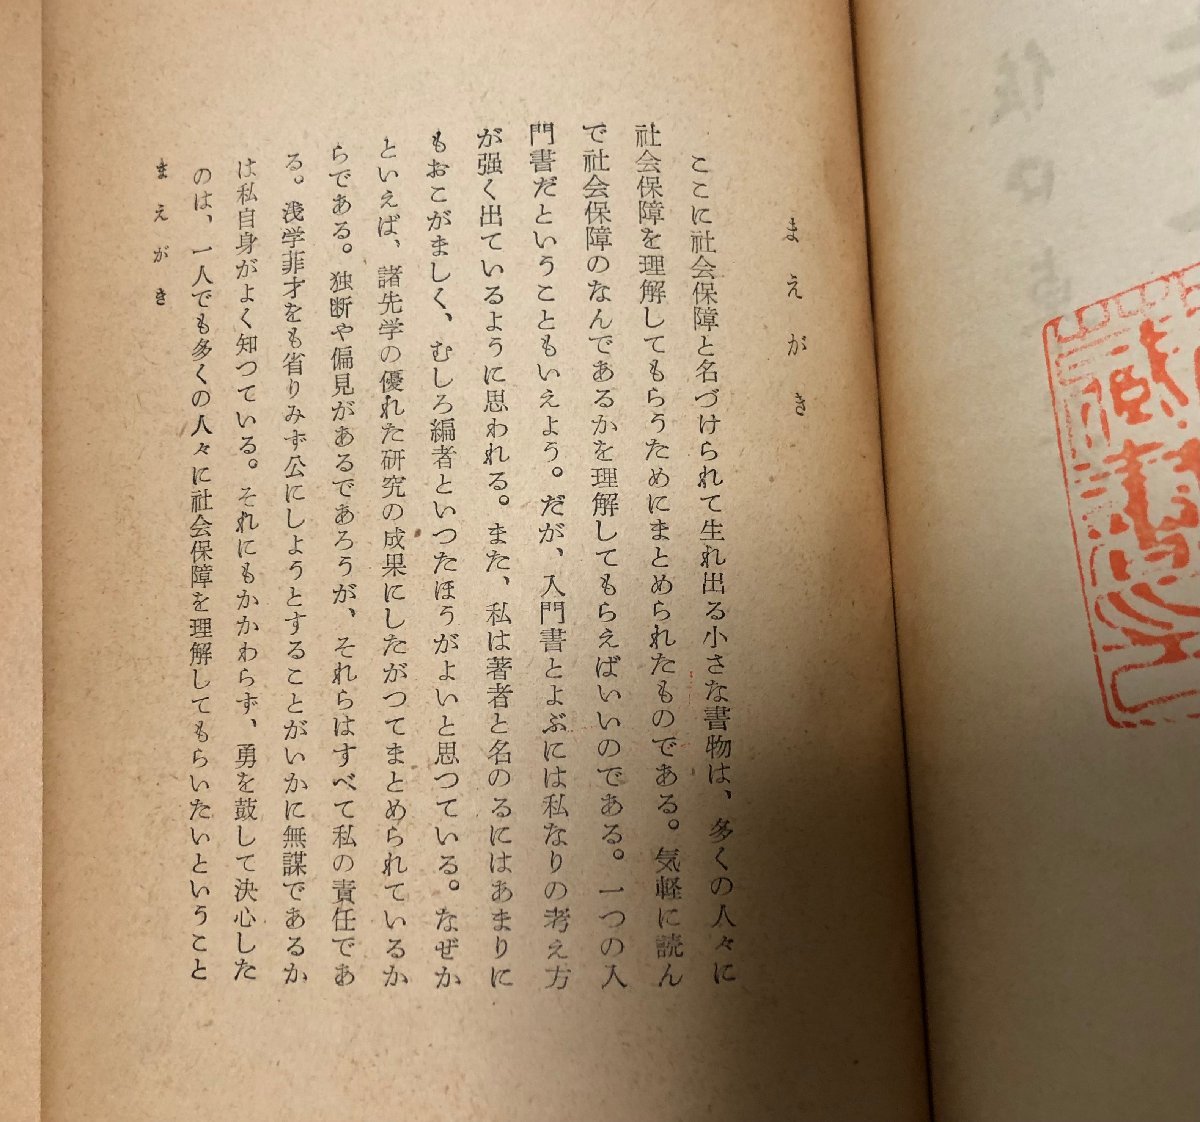 まえがき
ここに社会保障と名づけられて生れ出る小さな書物は、多くの人々に
社会保障を理解してもらうためにまとめられたものである。気軽に読ん
で社会保障のなんであるかを理解してもらえばいいのである。一つの入
門書だということもいえよう。だが、入門書とよぶには私なりの考え方
が强く出ているように思われる。また、私は著者と名のるにはあまりに
もおこがましく、むしろ編者といつたほうがよいと思つている。なぜか
といえば、諸先学の優れた研究の成果にしたがつてまとめられているか
らである。独断や偏見があるであろうが、それらはすべて私の責任であ
る。浅学菲才をも省りみず公にしようとすることがいかに無謀であるか
は私自身がよく知つている。それにもかかわらず、勇を鼓して決心した
のは、一人でも多くの人々に社会保障を理解してもらいたいということ
まえがき
蔵書